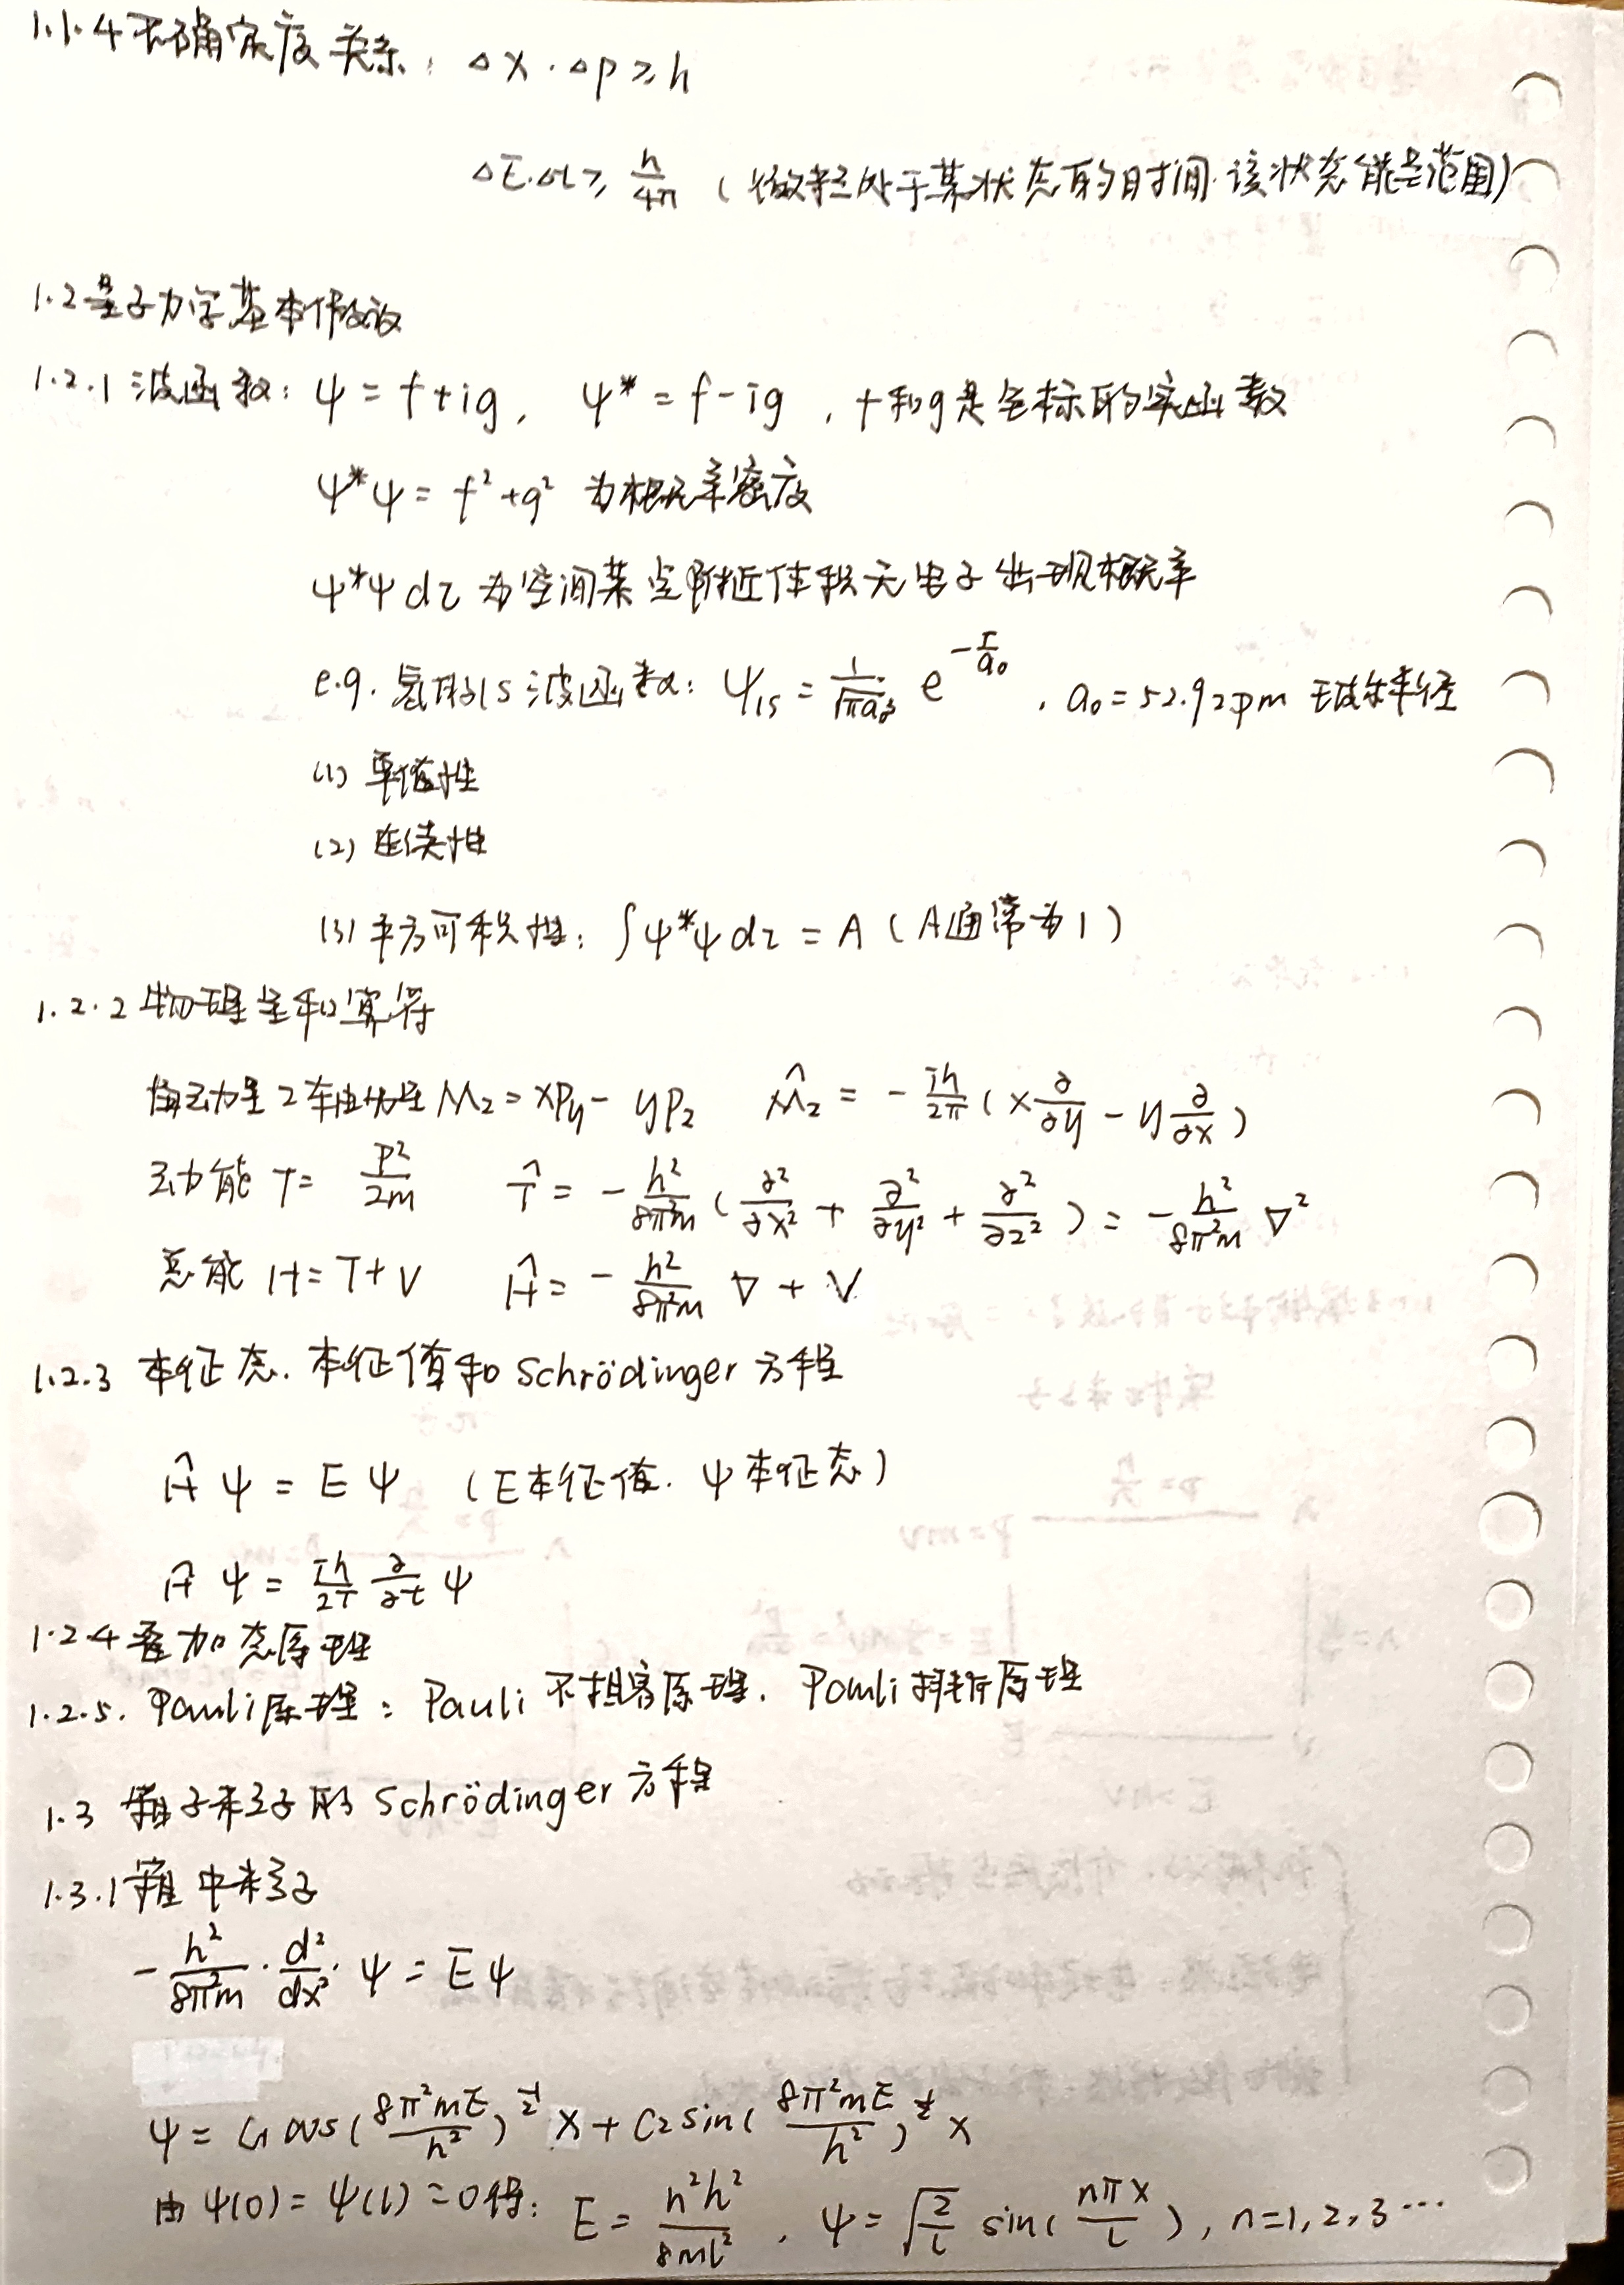 1.1.4 不确定度关系: Δx·Δp ≥ h
ΔE·Δt ≥ h/4π (微粒处于某状态的时间·该状态能量范围)
1.2 量子力学基本假设
1.2.1 波函数: ψ = f + ig, ψ* = f - ig, f和g是坐标的实函数
ψ*ψ = f² + g² 为概率密度
ψ*ψ dτ 为空间某点附近体积元电子出现概率
e.g. 氢的1s波函数: ψ₁s = 1/√(πa₀³) e^(-r/a₀), a₀ = 52.92pm 玻尔半径
(1) 单值性
(2) 连续性
(3) 平方可积性: ∫ψ*ψ dτ = A (A通常为1)
1.2.2 物理量和算符
角动量z轴分量 Mz = xPy - yPz M̂z = -ih/2π (x ∂/∂y - y ∂/∂x)
动能 T = P²/2m T̂ = -h²/8π²m (∂²/∂x² + ∂²/∂y² + ∂²/∂z²) = -h²/8π²m ∇²
总能 H = T + V Ĥ = -h²/8π²m ∇ + V
1.2.3 本征态.本征值和Schrödinger方程
Ĥψ = Eψ (E本征值. ψ本征态)
Ĥψ = ih/2π ∂/∂t ψ
1.2.4 叠加态原理
1.2.5. Pauli原理: Pauli不相容原理. Pauli排斥原理
1.3 箱子来子的Schrödinger方程
1.3.1 箱中来子
-h²/8π²m · d²/dx² · ψ = Eψ
ψ = C₁cos(8π²mE/h²)^½ x + C₂sin(8π²mE/h²)^½ x
由ψ(0) = ψ(l) = 0得: E = n²h²/8ml², ψ = √(2/l) sin(nπx/l), n=1,2,3…